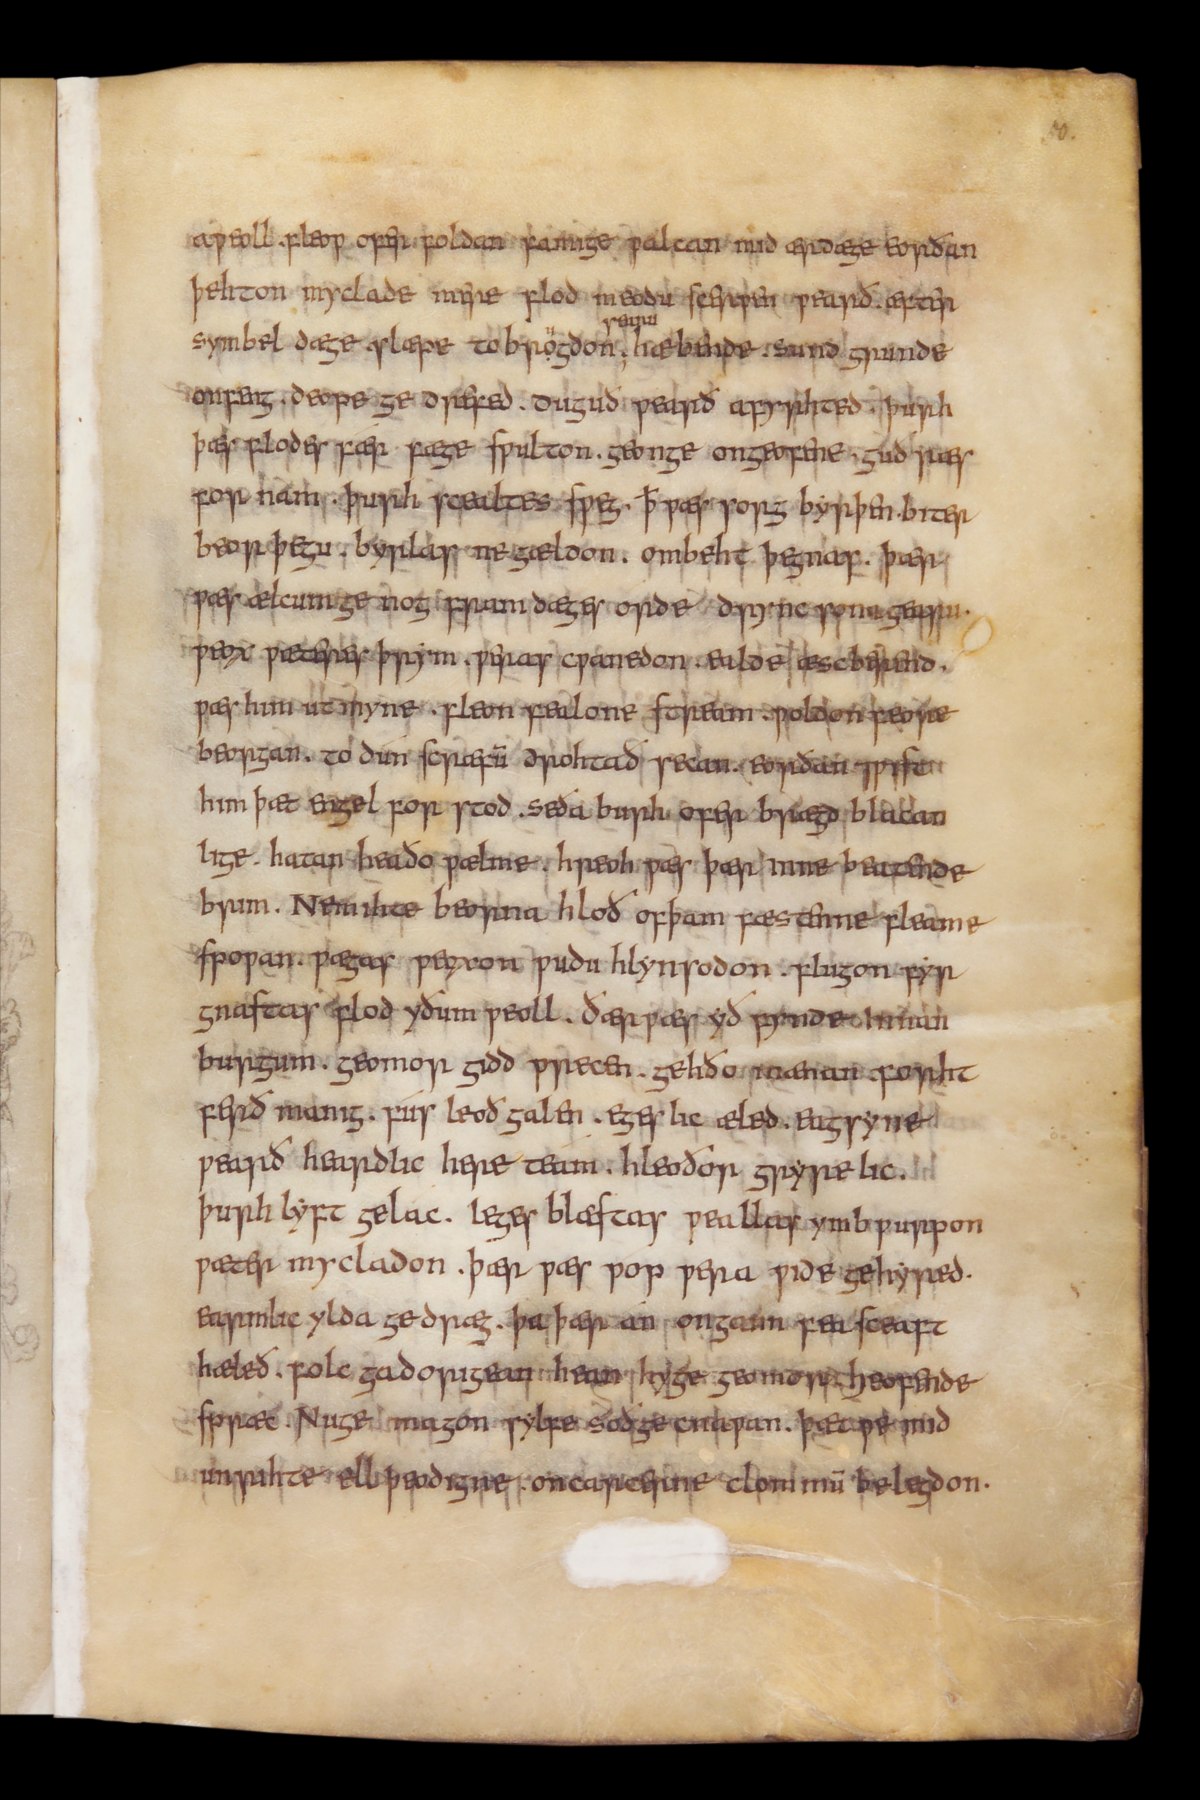 50.
aƿeoll . fleoƿ ofer foldan famige ƿalcan mid ærdæge eorðan
þehton myclade mere flod meodu scerƿen ƿearð . æfter
symbel dæge slæpe tobrugdon searu hæbende . sund grunde
onfeng . deope ge drefed . duguð ƿearð afyrhted . þurh
þæs flodes fær fæge sƿulton . geonge ongeofene . guð ræs
for nam . þurh scealtes sƿeg . ꝥ ƿæs sorg byrþen . biter
beor þegu . byrlas ne gældon . ombeht þegnas . þær
ƿæs ælcum ge nog fram dæges orde drync sona gearu .
ƿeox ƿæteres þrym . ƿeras cƿanedon . ealde æscberend .
ƿæs him ut myne . fleon fealone stream . ƿoldon feore
beorgan . to dun scrafū drohtað secan . eorðan ƿist
him þæt engel for stod . seða burh ofer brægd blacan
lige . hatan heaðo ƿælme . hreoh ƿæs þær inne beatende
brim . Ne mihte beorna hloð ofþam fæstenne fleame
sƿoƿan . ƿægas ƿeoxon ƿudu hlynsodon . flugon fyr
gnastas flod yðum ƿeoll . ðær ƿæs yð fynde innan
burgum . geomor gidd ƿrecen . gehðo mænan forht
ferð manig . fus leoð galen . eges lic æled . eagsyne
ƿearð heardlic here team . hleoðor gryre lic .
þurh lyft gelac . leges blæstas ƿeallas ymb ƿurƿon
ƿæter mycladon . þær ƿæs ƿop ƿera ƿide gehyred .
earmlic ylda gedræg . þa þær an ongann fea sceaft
hæleð . folc gadorigean hean hyge geomor heofende
sƿræc . Nu ge magon sylfe soð ge cnaƿan . þæt ƿe mid
unrihte ell þeodigne . on carcerne clommū belegdon .